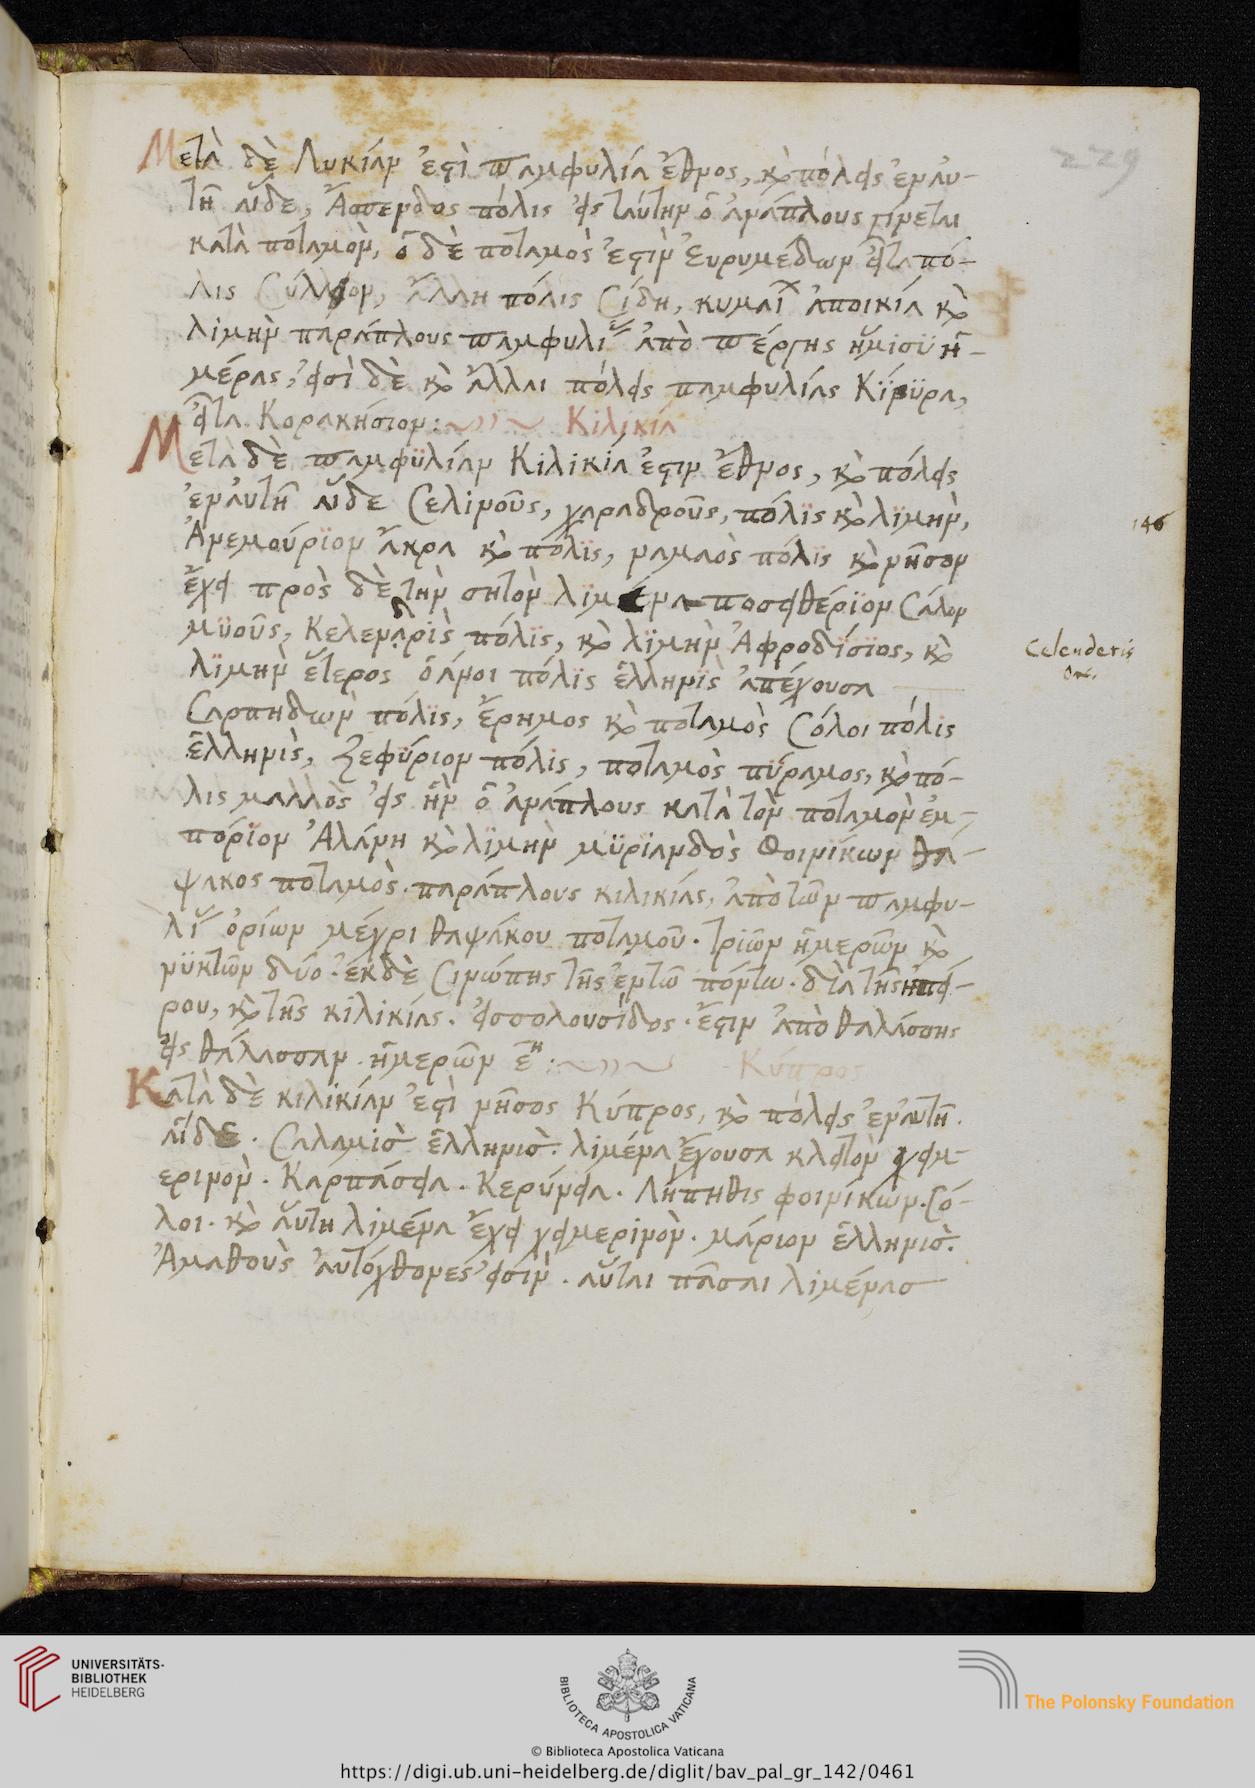 229
Μετὰ δὲ Λυκίαν ἐστὶ Παμφυλία ἔθνος, κ̀ πόλεις ἐν αυ-
τῆ αἵδε, Ἄσπενδος πόλις εἰς ταύτην ὁ ἀνάπλους γίνεται
κατὰ ποταμὸν, ὁ δὲ ποταμὸς ἐστὶν Ἐυρυμέδων εἶτα πό-
λις Σύλλειον, ἄλλη πόλις Σίδη, κυμαί ἀποικία κ̀
λιμὴν παράπλους παμφυλί ἀπὸ Πέργης ἥμισϋ ἡ-
μέρας, εἰσὶ δὲ κ̀ ἄλλαι πόλεις παμφυλίας Κίβϋρα,
εἶτα Κορακήσιον: Κιλικία
Μετὰ δὲ παμφϋλίαν Κιλικία ἐστιν ἔθνος, κ̀ πόλεις
ἐν ἀυτῆ αἵδε Σελινοῦς, χαραδροῦς, πόλϊς κ̀ λϊμὴν,
146
Ἀνεμούρϊον ἄκρα κ̀ πόλϊς, ναμαὸς πόλϊς κ̀ νῆσον
ἔχει πρὸς δὲ τὴν σητὸν λϊμένα ποσειθέρϊον Σάλον
μϋοῦς, Κελενδρϊς πόλϊς, κ̀ λϊμὴν Ἀφροδϊσϊος, κ̀
Celenderis
λϊμὴν ἕτερος ὁλμοι πόλϊς ἑλληνϊς ἀπέχουσα
Σαρπηδὼν πόλϊς, ἔρημος κ̀ ποταμὸς Σόλοι πόλϊς
ἑλληνὶς, Ζεφύριον πόλϊς, ποταμὸς πύραμος, κ̀ πό-
λις μαλλὸς εἰς ἣν ὁ ἀνάπλους κατὰ τὸν ποταμὸν ἐμ-
πόρϊον Ἀλάνη κ̀ λϊμὴν μϋρίανδὸς Φοινίκων θα-
ψακος ποταμὸς. παράπλους κιλικίας, ἀπὸ τῶν παμφυ-
λί ὁρίων μέχρι θαψάκου ποταμοῦ. τριῶν ἡμερῶν κ̀
νϋκτῶν δύο. ἐκ δὲ Σινώπης τῆς ἐν τῶ πόντω. δϊα τῆς ἠπεί-
ρου, κ̀ τῆς κϊλϊκίας. εἰσσολουσίδος. ἔστιν ἀπὸ θαλάσσης
εἰς θάλασσαν. ἡμερῶν ε: Κύπρος
Κατὰ δὲ κιλϊκίαν ἐστὶ νῆσος Κύπρος, κ̀ πόλεις ἐν ἀυτῆ.
αἵδε. Σαλαμὶσ ἑλληνισ. λιμένα ἔχουσα κλειτὸν χειμ-
ερινὸν. Κάρπάσεια. Κερύνεια. Λήπηθις φοινίκων. Σό-
λοι. κ̀ ἄυτη λιμένα ἔχει χειμερινὸν. μάριον ἑλληνισ.
Ἀμαθοὺς ἀυτόχθονές εἰσὶν. αὗται πᾶσαι λιμένασ
UNIVERSITÄTS-
BIBLIOTHEK
HEIDELBERG
BIBLIOTECA APOSTOLICA VATICANA
The Polonsky Foundation
© Biblioteca Apostolica Vaticana
https://digi.ub.uni-heidelberg.de/diglit/bav_pal_gr_142/0461